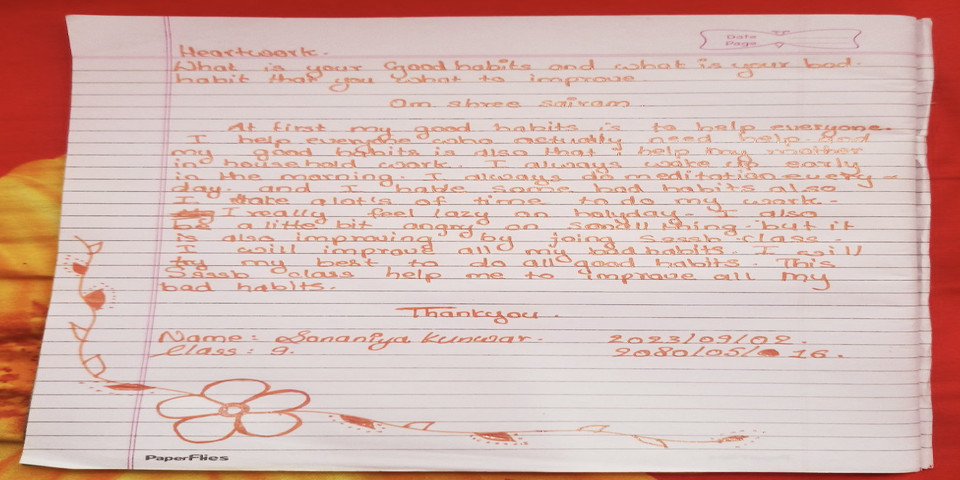 Date
Page
Heartwork.
What is your Good habits and what is your bad.
habit that you what to improve.
Om shree sairam
At first my good habits is to help everyone.
I help everyone who actually need help. And
my good habits is also that I help my mother
in household work. I always wake up early
in the morning. I always do meditation every-
day. and I have some bad habits also
I take alot's of time to do my work.
I really feel lazy on holyday. I also
be a litte bit angry on small thing. but it
is also improving by joing Sssb class.
I will improve all my bad habits. I will
try my best to do all good habits. This
Sssb class help me to improve all my
bad habits.
Thankyou.
Name: Sananiya Kunwar. 2023/09/02.
Class: 9. 2080/05/16.
PaperFlies